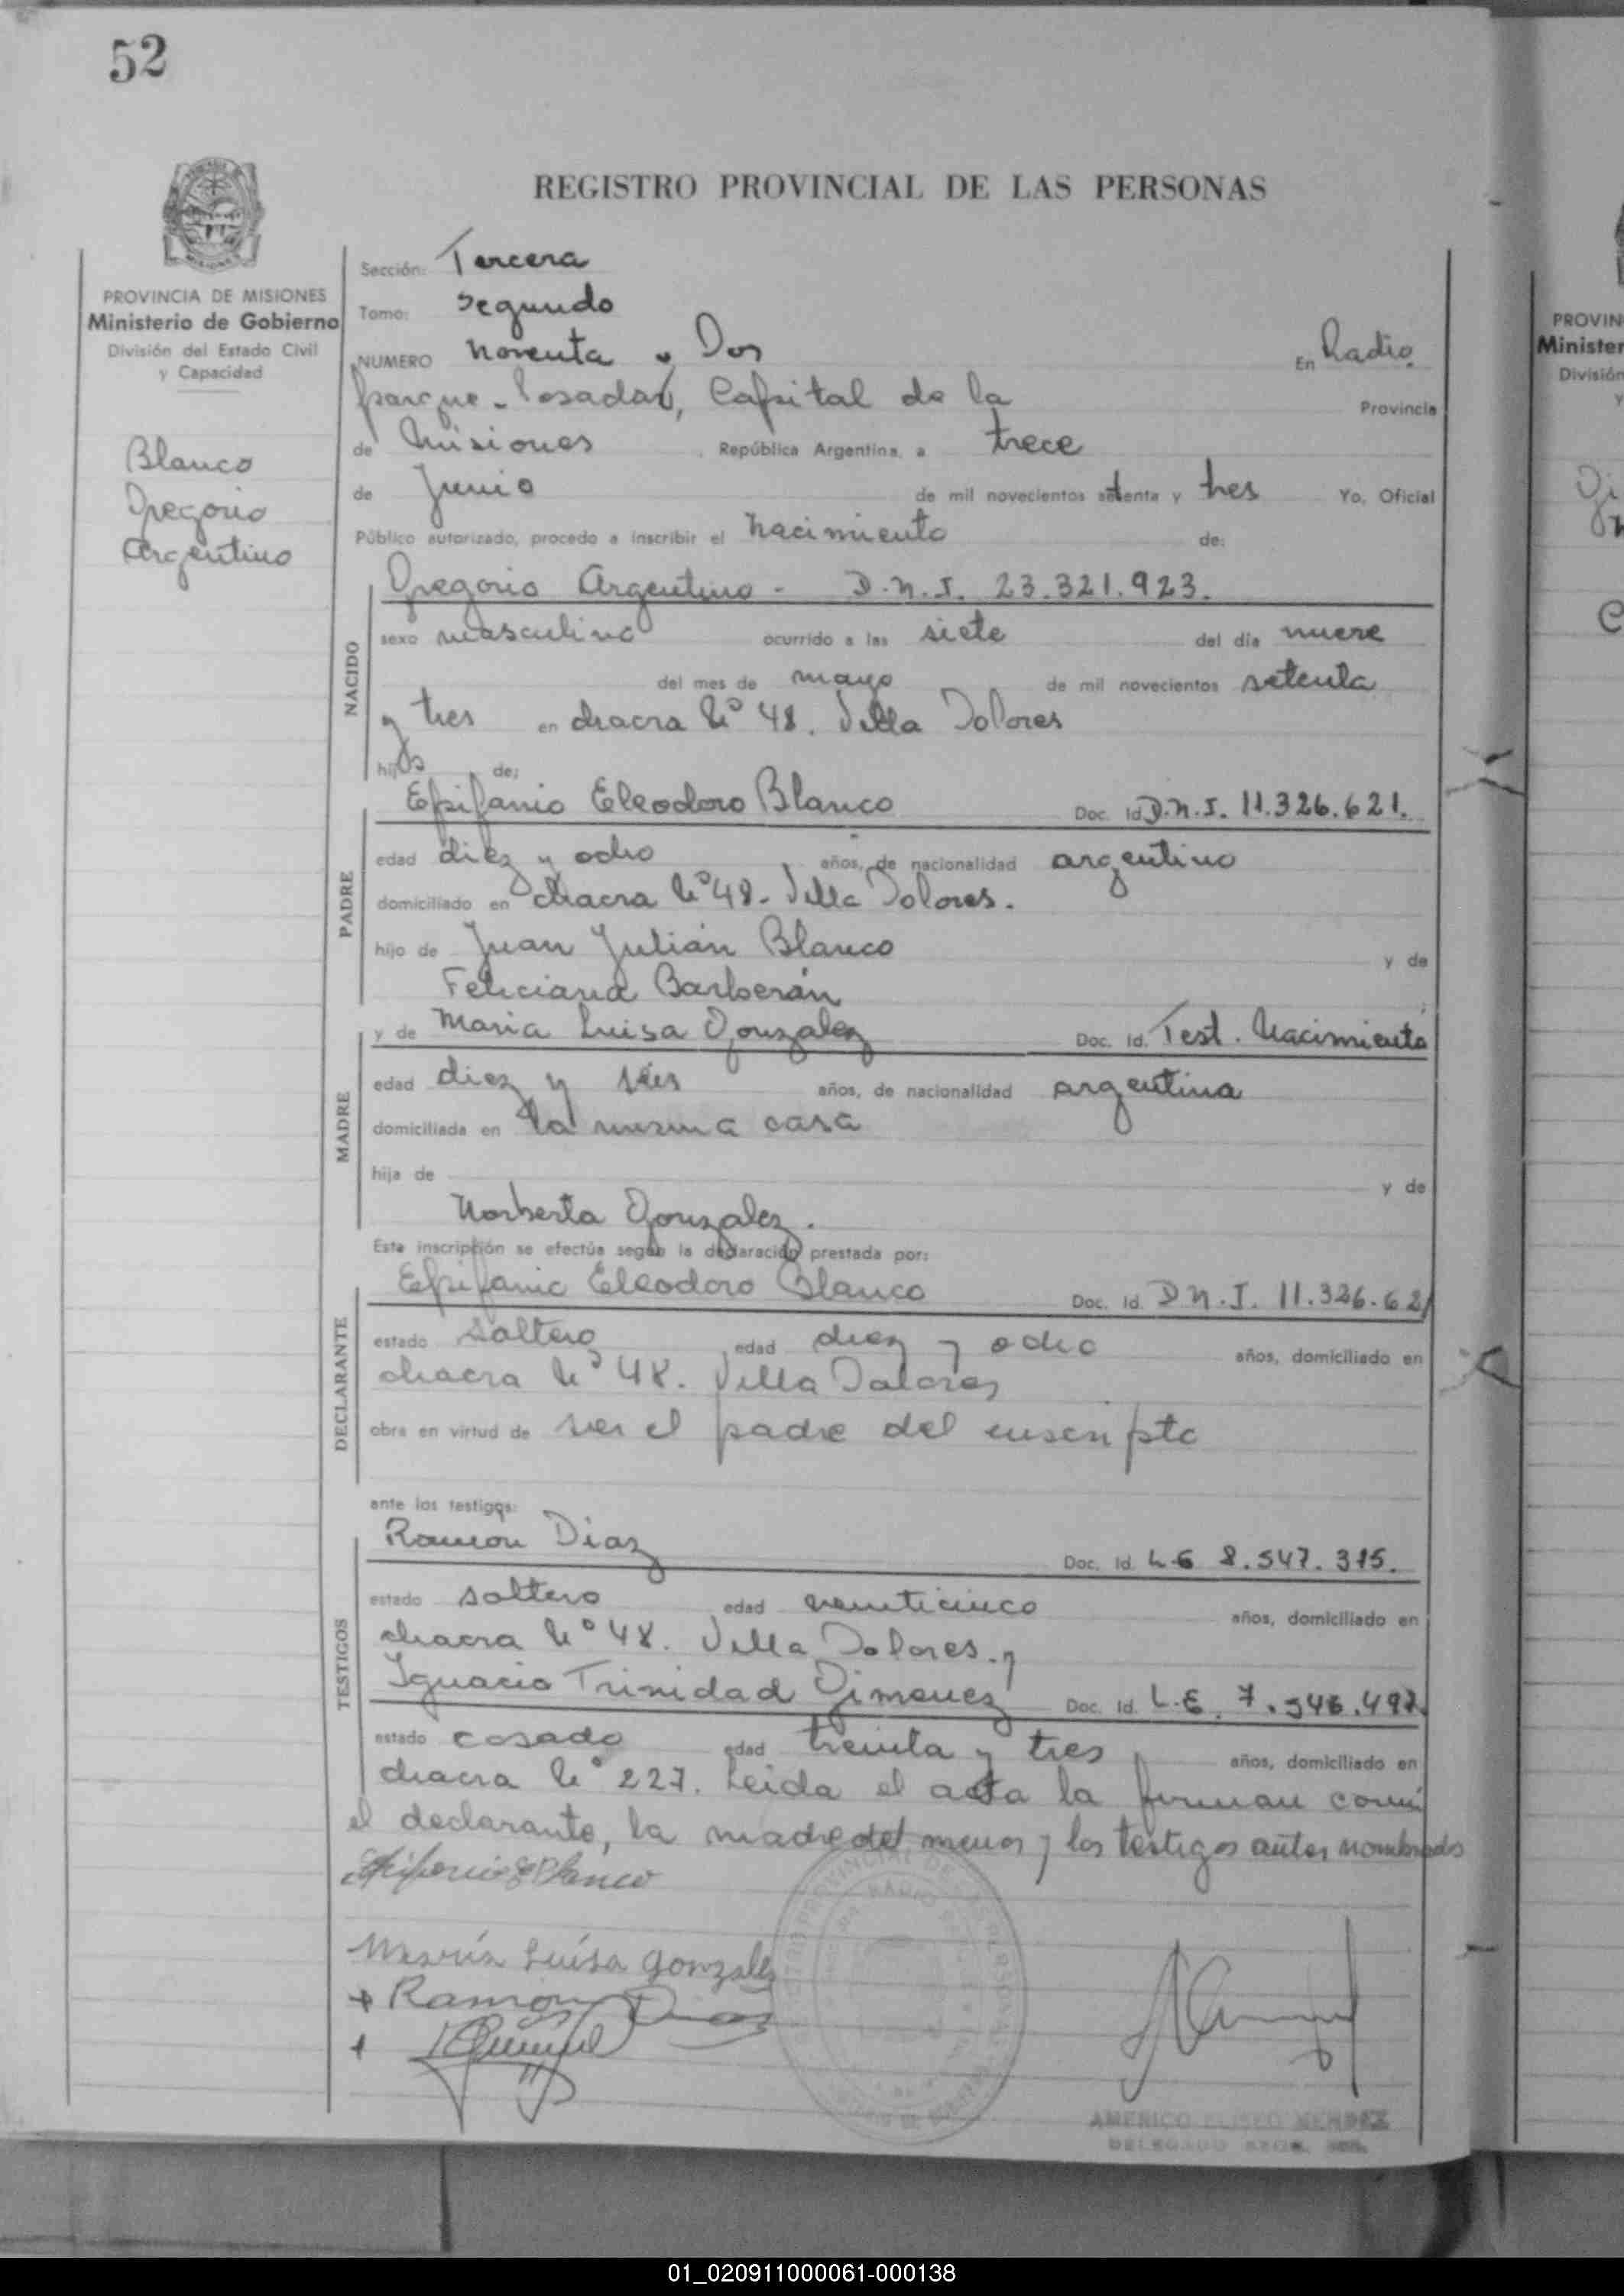 52
REGISTRO PROVINCIAL DE LAS PERSONAS
PROVINCIA DE MISIONES
Ministerio de Gobierno
División del Estado Civil
y Capacidad
Blanco
Gregorio
Argentino
Sección: Tercera
Tomo: Segundo
NUMERO Noventa y Dos En Radio
parque - Posadas, Capital de la Provincia
de Misiones , República Argentina, a trece
de Junio de mil novecientos setenta y tres Yo, Oficial
Público autorizado, procedo a inscribir el Nacimiento de:
NACIDO
Gregorio Argentino - D.N.I. 23.321.923.
sexo masculino ocurrido a las siete del día nueve
del mes de mayo de mil novecientos setenta
y tres en chacra Nº 48. Villa Dolores
hijo de:
PADRE
Epifanio Eleodoro Blanco Doc. Id D.N.I. 11.326.621.
edad diez y ocho años, de nacionalidad argentino
domiciliado en chacra Nº 48 - Villa Dolores.
hijo de Juan Julián Blanco y de
Feliciana Barberán
MADRE
y de Maria Luisa Gonzalez Doc. Id. Test. Nacimiento
edad diez y seis años, de nacionalidad argentina
domiciliada en la misma casa
hija de y de
Norberta Gonzalez.
Esta inscripción se efectúa según la declaración prestada por:
DECLARANTE
Epifanio Eleodoro Blanco Doc. Id. D N.I. 11.326.621
estado soltero edad diez y ocho años, domiciliado en
chacra Nº 48. Villa Dolores
obra en virtud de ser el padre del inscripto
ante los testigos:
TESTIGOS
Ramón Diaz Doc. Id. L E 8.547.315.
estado soltero edad veinticinco años, domiciliado en
chacra Nº 48. Villa Dolores. y
Ignacio Trinidad Gimenez Doc. Id. L.E. 7.546.492
estado casado edad treinta y tres años, domiciliado en
chacra Nº 227. Leida el acta la firman
el declarante, la madre del menor y los testigos antes nombrados
María Luísa Gonzalez
+ Ramón Dias
+
AMERICO ELISEO MENDEZ
PROVIN
Minister
División
y
01_020911000061-000138